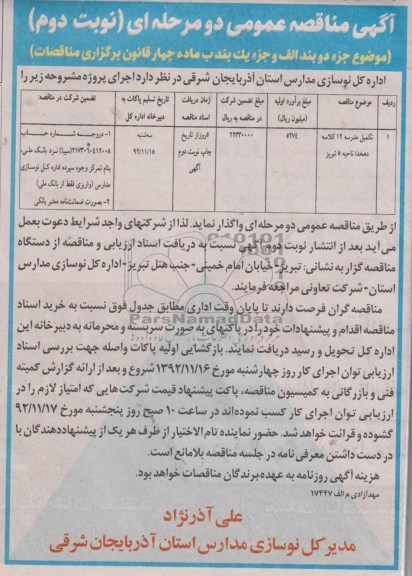 آگهی مناقصه عمومی دو مرحله ای (نوبت دوم)
(موضوع جزء دو بند الف و جزء یك بند پ ماده چهار قانون برگزاری مناقصات)
اداره کل نوسازی مدارس استان آذربایجان شرقی در نظر دارد اجرای پروژه مشروحه زیر را
ردیف موضوع مناقصه مبلغ برآورد اولیه (میلیون ریال) مبلغ تضمین شرکت در مناقصه به ریال زمان دریافت اسناد مناقصه تاریخ تسلیم پاکات به دبیرخانه اداره کل تضمین شرکت در مناقصه:
۱ تکمیل مدرسه ۱۲ کلاسه دهخدا ناحیه ۵ تبریز ۵۲۷۴ ۲۲۳۳۰۰۰۰ ۵ روز از تاریخ چاپ نوبت دوم آگهی سه‌شنبه ۹۲/۱۱/۱۵
۱- در وجه شماره حساب
(سیبا) نزد بانک ملی،
بنام تمرکز وجوه سپرده اداره کل نوسازی
مدارس (واریزی فقط از بانک ملی)
۲- بصورت ضمانتنامه معتبر بانکی
از طریق مناقصه عمومی دو مرحله‌ای واگذار نماید. لذا از شرکتهای واجد شرایط دعوت بعمل
می آید بعد از انتشار نوبت دوم آگهی نسبت به دریافت اسناد ارزیابی و مناقصه از دستگاه
مناقصه گزار به نشانی: تبریز - خیابان امام خمینی - جنب هتل تبریز - اداره کل نوسازی مدارس
استان - شرکت تعاونی مراجعه فرمایند.
مناقصه گران فرصت دارند تا پایان وقت اداری مطابق جدول فوق نسبت به خرید اسناد
مناقصه اقدام و پیشنهادات خود را در پاکتهای به صورت سربسته و محرمانه به دبیرخانه این
اداره کل تحویل و رسید دریافت نمایند. بازگشایی اولیه پاکات واصله جهت بررسی اسناد
ارزیابی توان اجرای کار روز چهارشنبه مورخ ۱۳۹۲/۱۱/۱۶ شروع و بعد از ارائه گزارش کمیته
فنی و بازرگانی به کمیسیون مناقصه، پاکت پیشنهاد قیمت شرکت‌هایی که امتیاز لازم را در
ارزیابی توان اجرای کار کسب نموده‌اند در ساعت ۱۰ صبح روز پنجشنبه مورخ ۹۲/۱۱/۱۷
گشوده و قرائت خواهد شد. حضور نماینده تام‌الاختیار از طرف هر یک از پیشنهاددهندگان با
در دست داشتن معرفی نامه در جلسه مناقصه بلامانع است.
هزینه آگهی روزنامه به عهده برندگان مناقصات خواهد بود.
مهدازادی م الف ۱۷۴۴۷
علی آذرنژاد
مدیر کل نوسازی مدارس استان آذربایجان شرقی
ParsNamadData